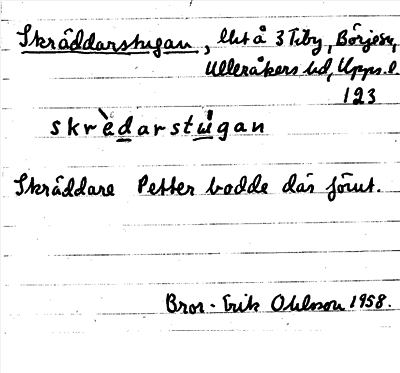 Skräddarstugan, lht å 3 Tiby, Börje sn,
Ulleråkers hd, Upps. l.
123
skrèdarstúgan
Skräddare Petter bodde där förut.
Bror-Erik Ohlsson 1958.